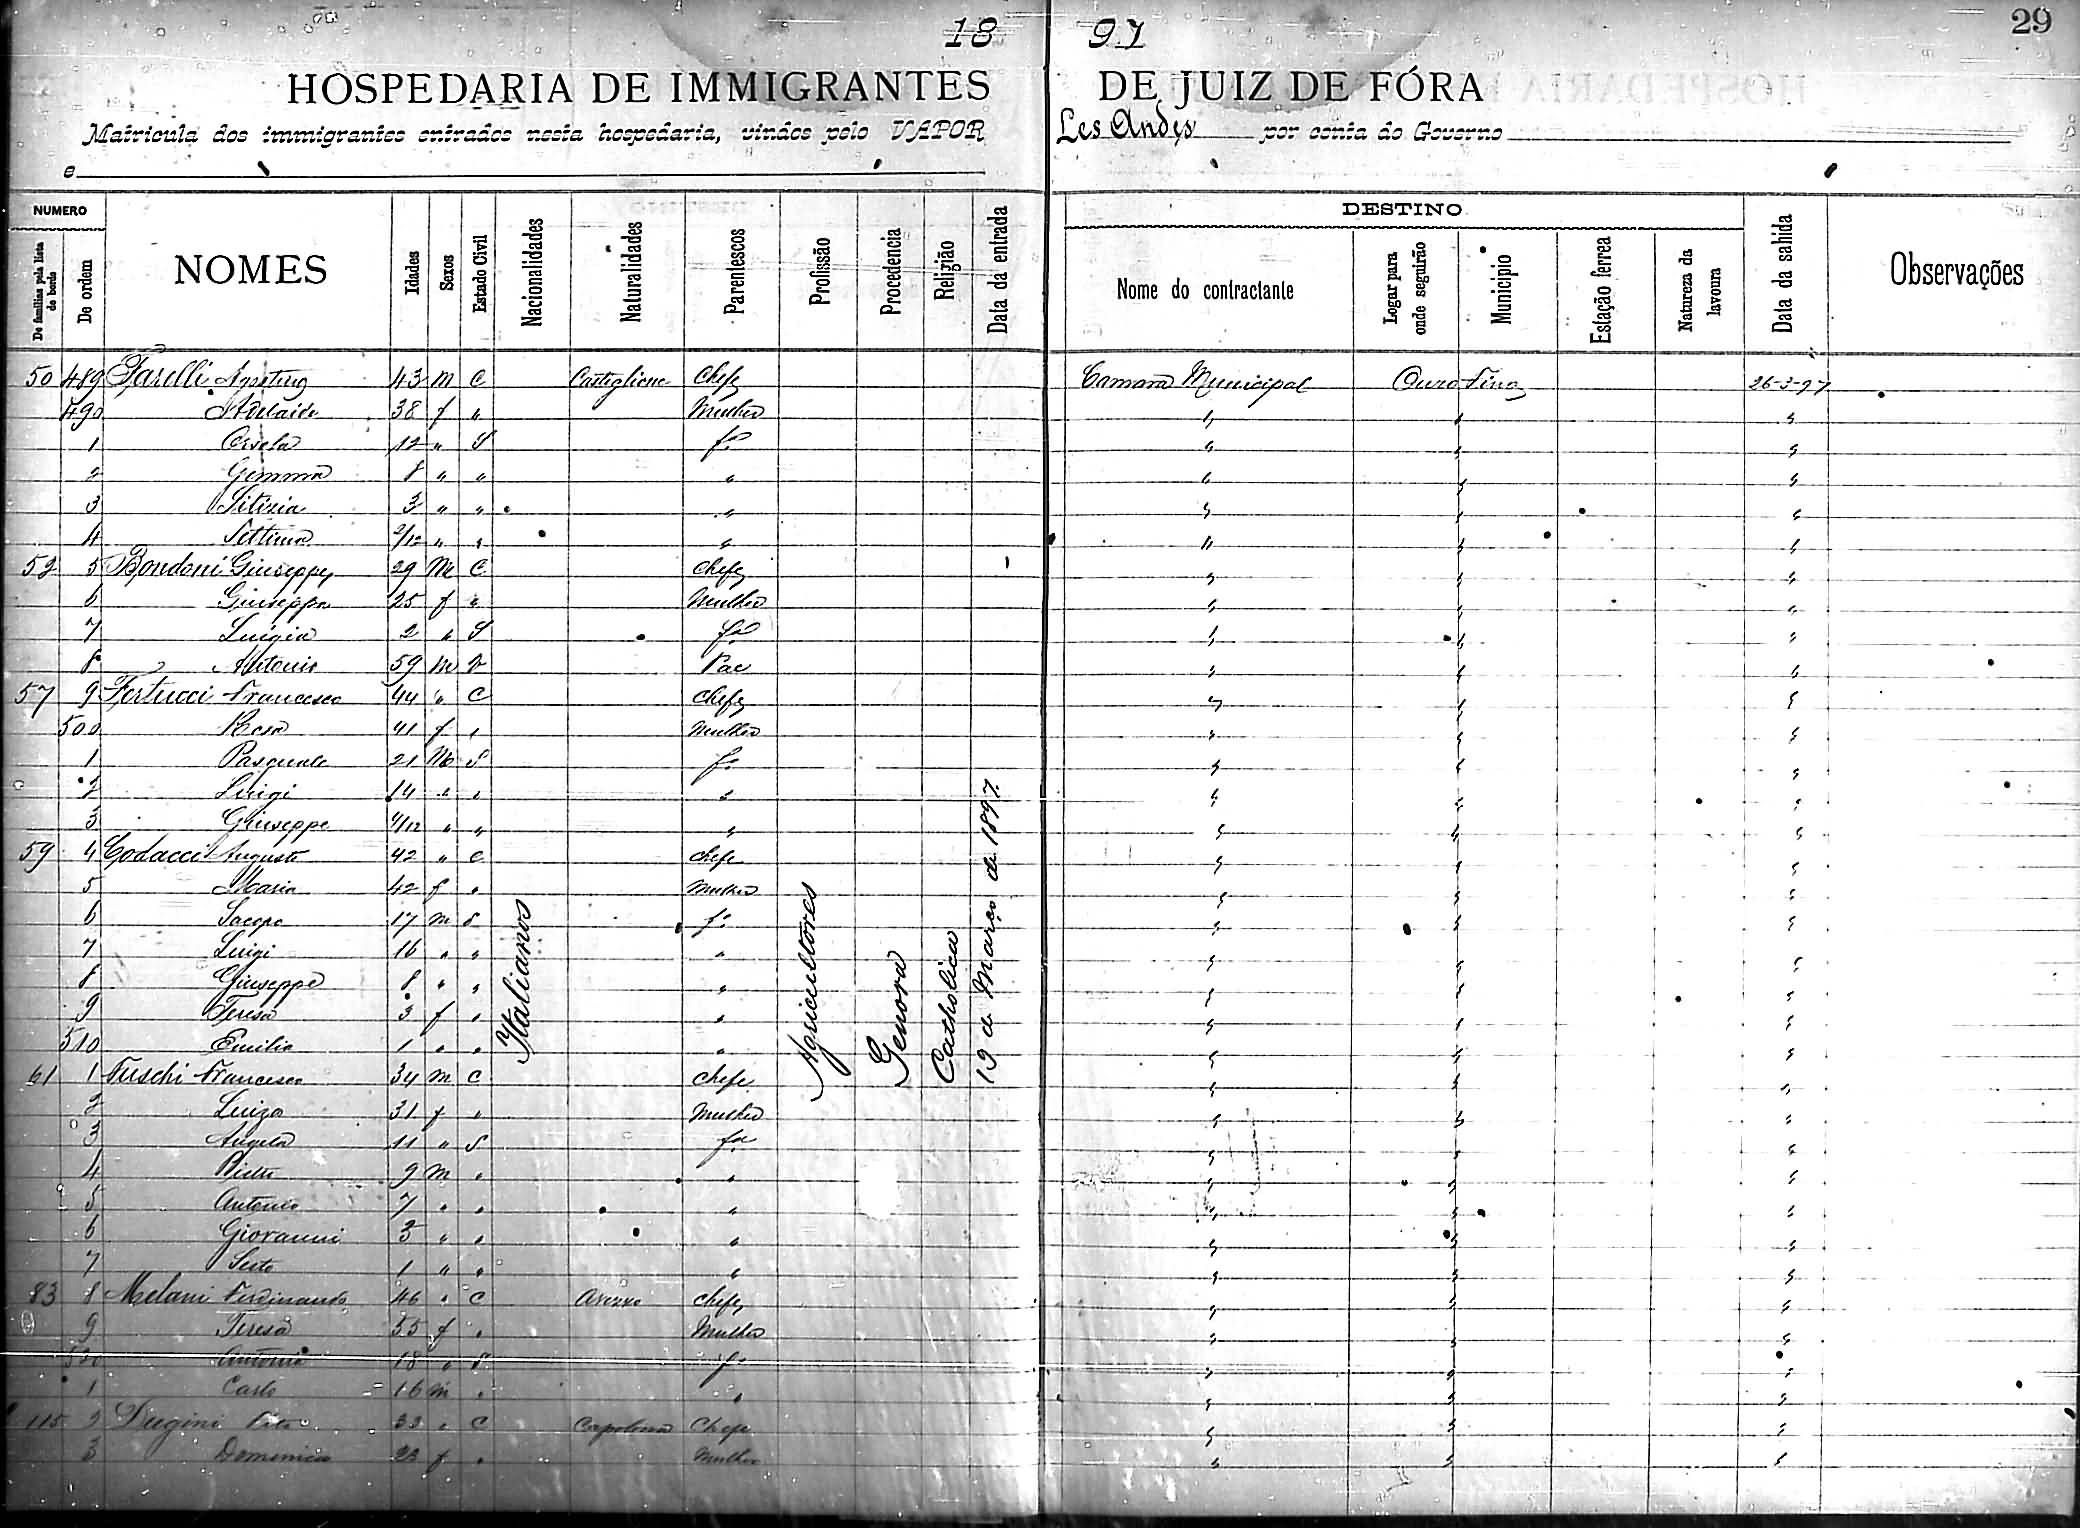 18 97
29
HOSPEDARIA DE IMMIGRANTES DE JUIZ DE FÓRA
Matricula dos immigrantes entrados nesta hospedaria, vindos pelo VAPOR Les Andes por conta do Governo
e
NUMERO
De familias pela lista de bordo
De ordem
NOMES
Idades
Sexos
Estado Civil
Nacionalidades
Naturalidades
Parentescos
Profissão
Procedencia
Religião
Data da entrada
DESTINO
Nome do contractante
Logar para onde seguirão
Municipio
Estação ferrea
Natureza da lavoura
Data da sahida
Observações
50 489 Farelli Agostino 43 M C Castiglione Chefe Camara Municipal Ouro Fino 26-3-97
490 Adelaide 38 f " Mulher " " "
1 Ersela 12 " S fa " " "
2 Gemma 8 " " " " " "
3 3 " " " " " "
4 Settima 2/12 " " " " " "
52 5 Bondoni Giuseppe 29 M C Chefe " " "
6 Giuseppa 25 f " Mulher " " "
7 Luigia 2 " S fa " " "
8 Antonio 59 M V Pae " " "
57 9 Fertucci Francesco 44 " C Chefe " " "
500 Rosa 41 f " Mulher " " "
1 Pasquale 21 M S fo " " "
2 Luigi 14 " " " " " "
3 Giuseppe 4/12 " " " " " "
59 4 Codacci Augusto 42 " C Chefe " " "
5 Maria 42 f " Mulher " " "
6 Jacopo 17 M S fo " " "
7 Luigi 16 " " " " " "
8 Giuseppe 8 " " " " " "
9 Teresa 3 f " " " " "
510 Emilia 1 " " " " " "
61 1 Fuschi Francesco 34 M C Chefe " " "
2 Luiza 31 f " Mulher " " "
3 Angela 11 " S fa " " "
4 Pietro 9 M " " " " "
5 Antonio 7 " " " " " "
6 Giovanni 3 " " " " " "
7 Sesto 1 " " " " " "
83 8 Melani Ferdinando 46 " C Arezzo Chefe " " "
9 Teresa 55 f " Mulher " " "
520 Antonia 18 " S fa " " "
1 Carlo 16 M " " " " "
115 2 Dugini Vito 33 " C Capolona Chefe " " "
3 Domenica 23 f " Mulher " " "
Italianos
Agricultores
Genova
Catholica
19 de Março de 1897